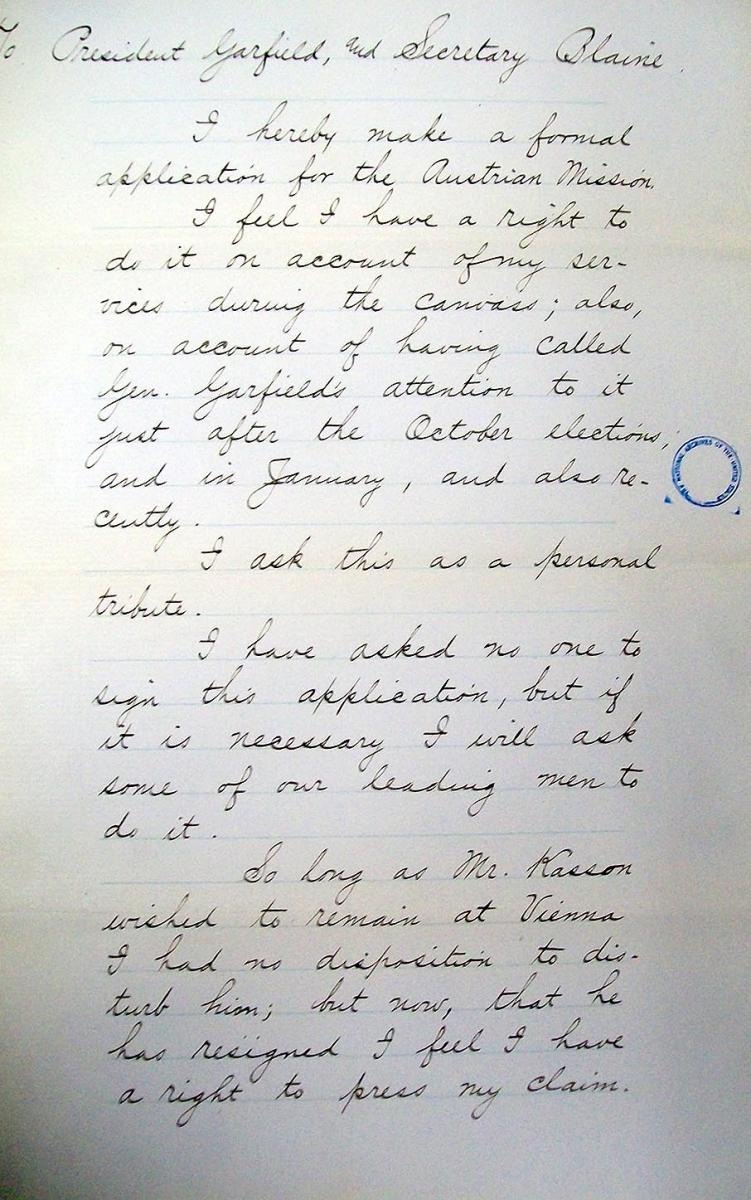 To President Garfield, and Secretary Blaine
I hereby make a formal
application for the Austrian Mission.
I feel I have a right to
do it on account of my ser-
vices during the canvass; also,
on account of having called
Gen. Garfield's attention to it
just after the October elections,
and in January, and also re-
cently.
I ask this as a personal
tribute.
I have asked no one to
sign this application, but if
it is necessary I will ask
some of our leading men to
do it.
So long as Mr. Kasson
wished to remain at Vienna
I had no disposition to dis-
turb him; but now, that he
has resigned I feel I have
a right to press my claim.
NATIONAL ARCHIVES OF THE UNITED STATES